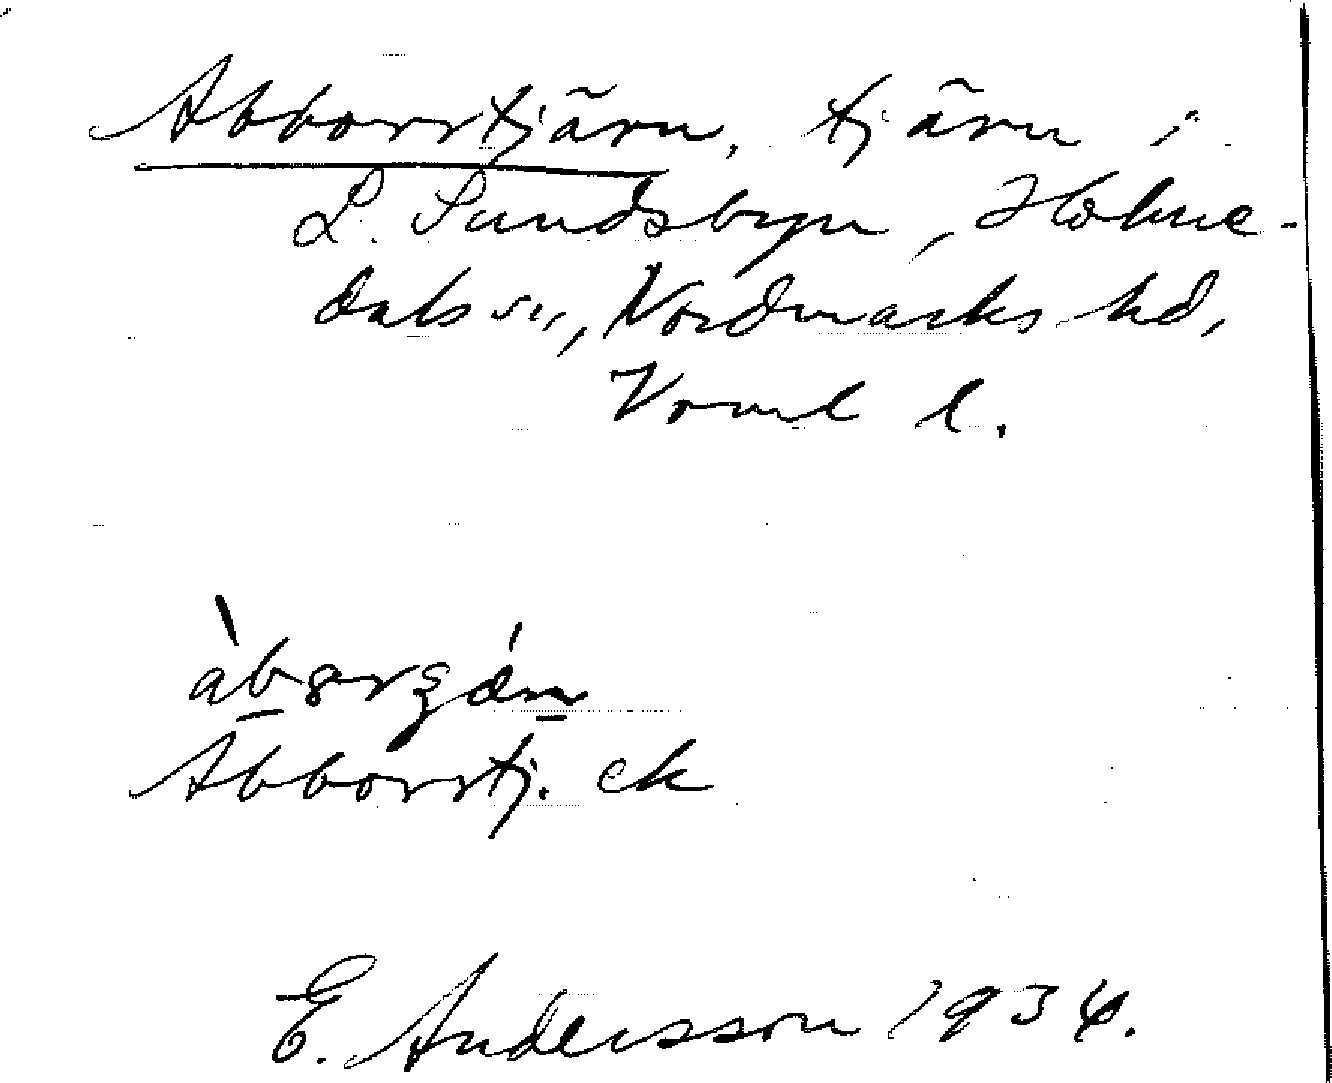 Abborrtjärn, tjärn i
L. Sundsbyn, Holme-
dals sn, Nordmarks hd,
Vrml l.
Abborrtj. ek
E. Andersson 1934.